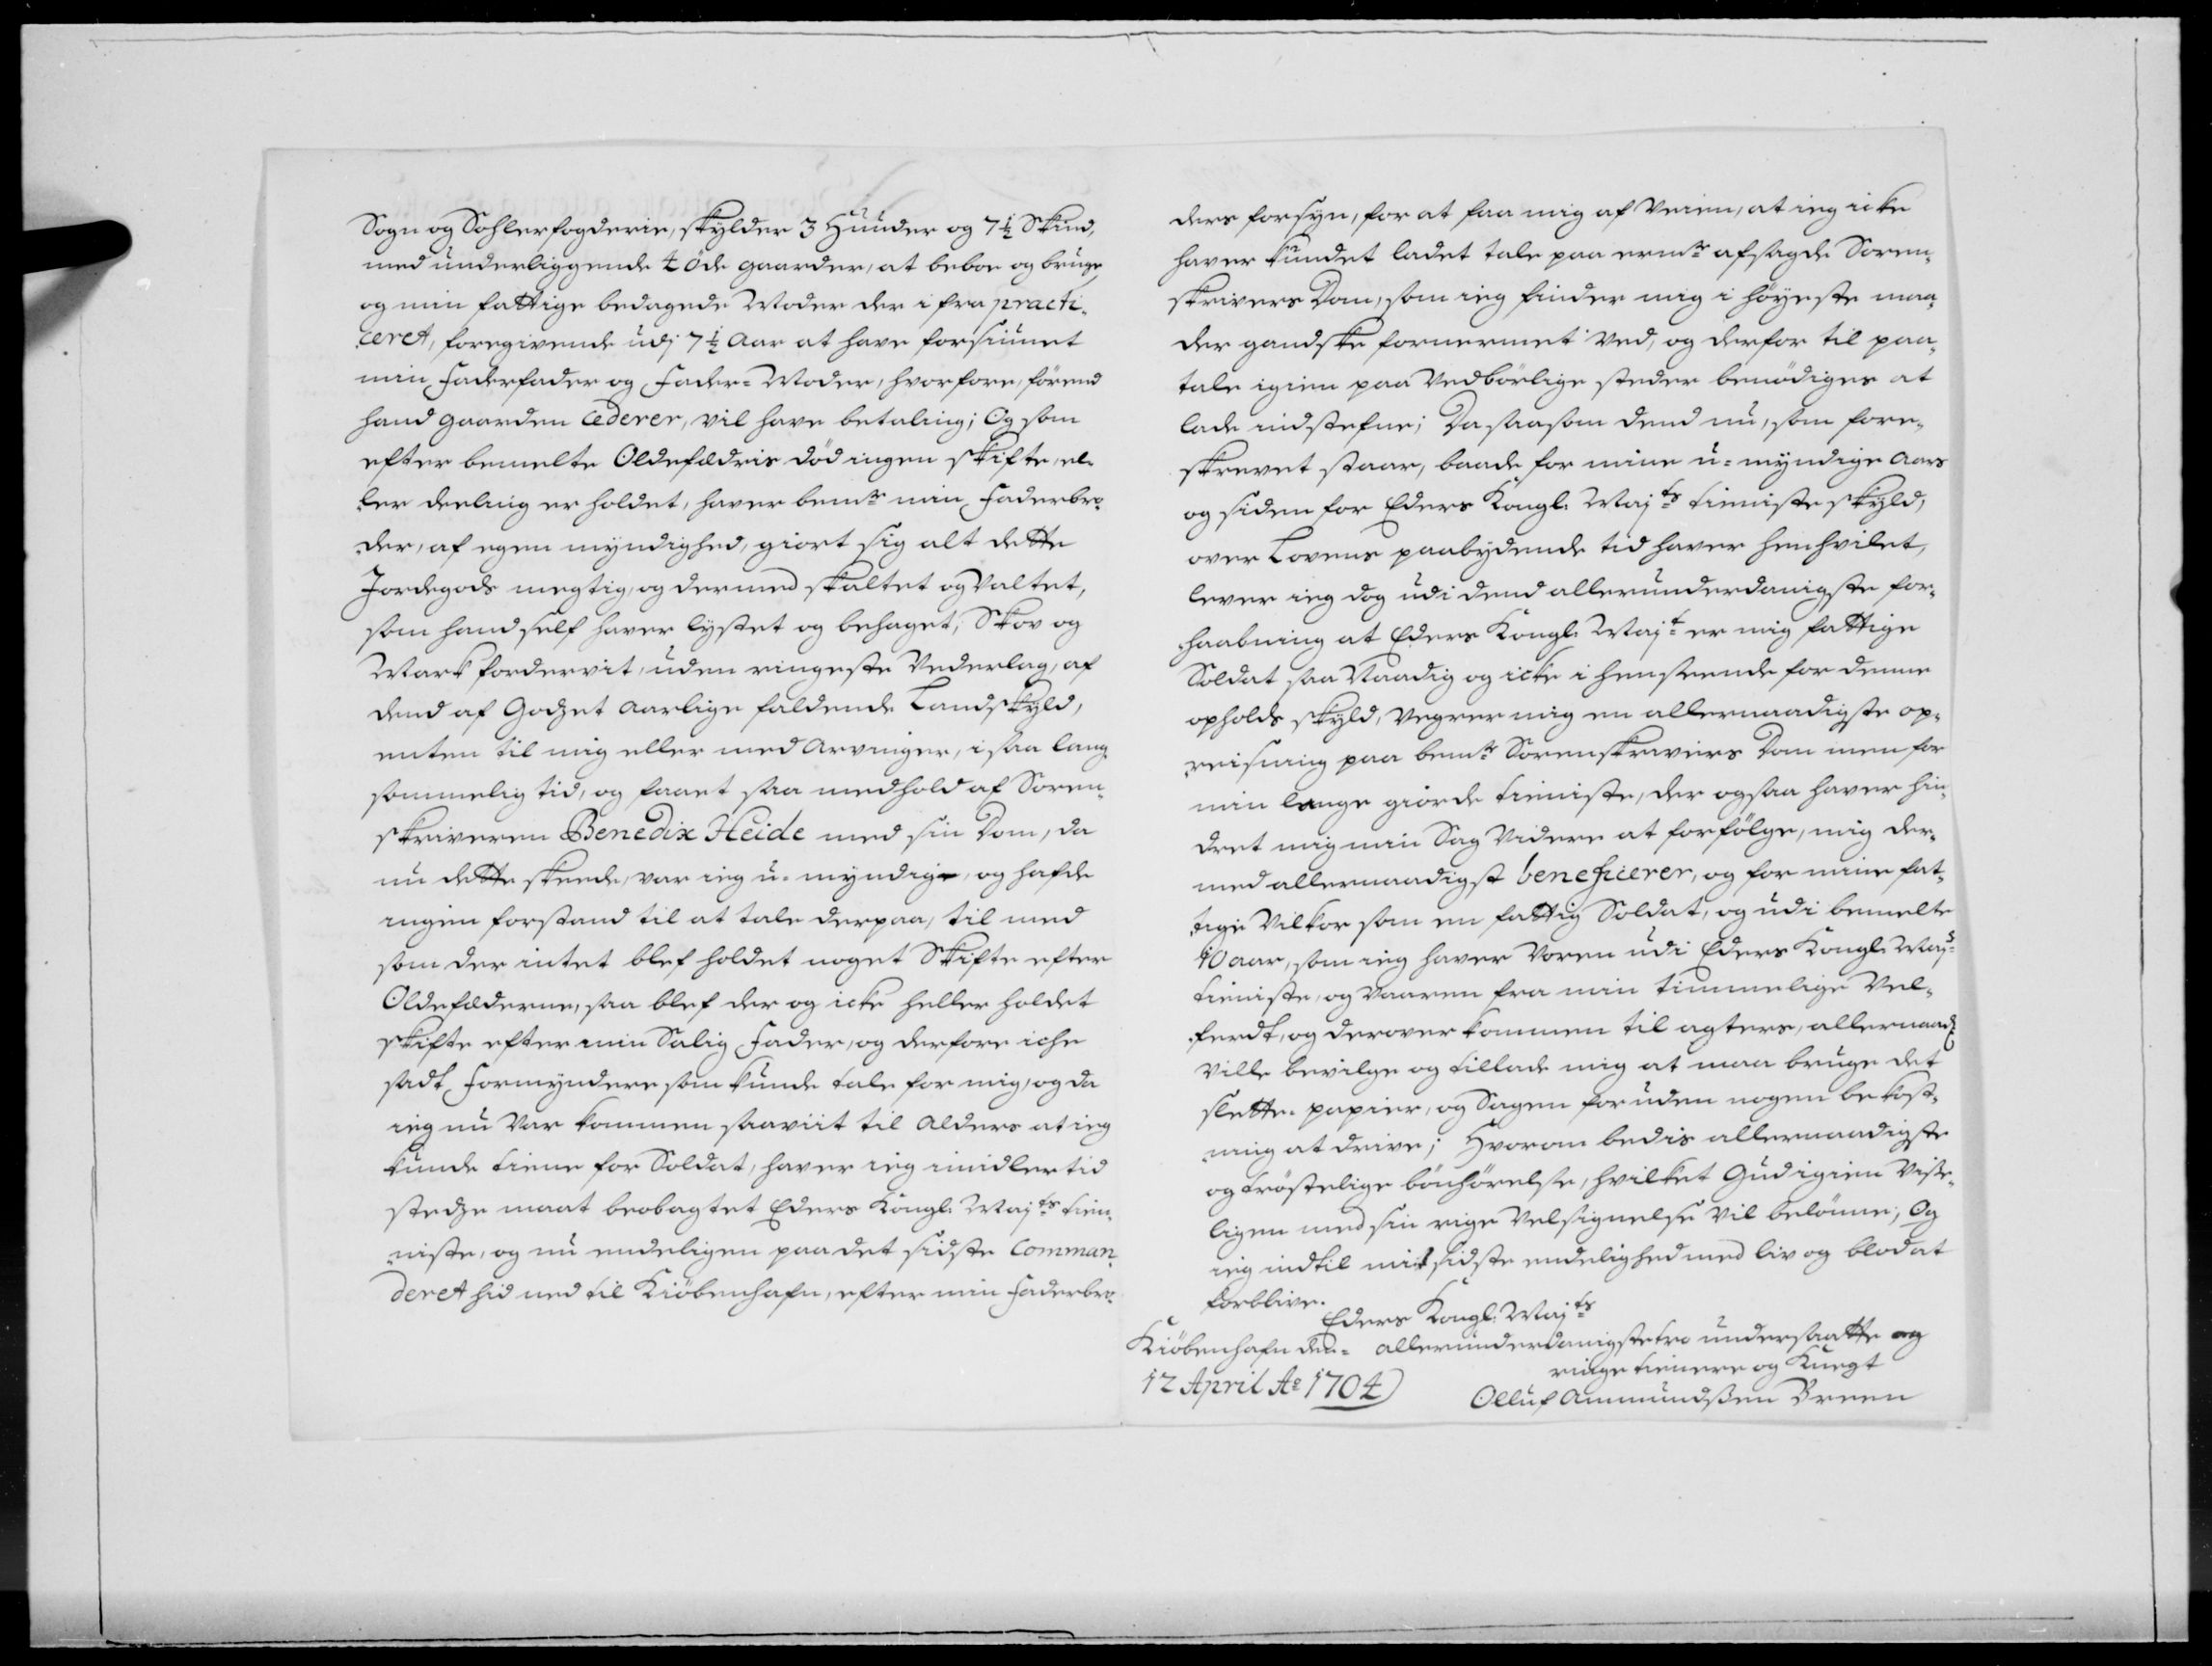 Sogn og Sohlerfogderie, skylder 3 Huuder og 7½ Skind,
med underliggende 4 öde gaarder, at beboe og bruge
og min fattige bedagede Moder der ifra practi-
ceret, foregivende udj 7½ Aar at have forsiunet
min Faderfader og Fader-Moder, hvorfore, förend
hand gaarden cederer, vil have betaling; Og som
efter bemelte Oldefædris död ingen skifte, el-
ler deeling er holdet, haver bemte min Faderbro-
der, af egen myndighed, giort sig alt dette
Jordegods megtig, og dermed skaltet og Valtet,
som hand self haver lystet og behaget, Skov og
Mark fordervit, uden ringeste Vederlag, af
dend af Godzet aarlige faldende Landskyld,
enten til mig eller med Arvinger, i saa lang-
sommelig tid, og faaet saa medhold af Soren-
skriveren Benedix Heide med sin Dom, da
nu dette skeede, var ieg u-myndig, og hafde
ingen forstand til at tale derpaa, til med
som der intet blef holdet noget Skifte efter
Oldefæderne, saa blef der og icke heller holdet
skifte efter min Salig Fader, og derfore iche
sadt Formyndere som kunde tale for mig, og da
ieg nu Var kommen saaviit til Alders at ieg
kunde tiene for Soldat, haver ieg imidlertid
stedze maat beobagtet Eders Kongl. Majts tien-
niste, og nu endeligen paa det sidste comman-
deret hid ned til Kiöbenhafn, efter min Faderbro-
ders forsyn, for at faa mig af Veien, at ieg icke
haver kundet ladet tale paa ermte afsagde Soren-
skrivers Dom, som ieg finder mig i höyeste maa-
der gandske fornermet Ved, og derfor til paa-
tale igien paa Vedbörlige steder benödiges at
lade indstefne; Da saasom dend nu, som fore-
skrevet staar, baade for mine u-myndige Aars
og siden for Eders Kongl. Majts tieniste skyld,
over Lovens paabydende tid haver henhvilet,
lever ieg dog udi dend allerunderdanigste for-
haabning at Eders Kongl. Majt er mig fattige
Soldat saa Naadig og icke i henseende for denne
opholds skyld, Vegrer mig en allernaadigste op-
reisning paa bemte Sorenskrivers Dom men for
min lange giorde tieniste, der ogsaa haver hin-
dret mig min Sag Videre at forfölge, mig der-
med allernaadigst beneficerer, og for mine fat-
tige Vilkor som en fattig Soldat, og udi bemelte
10 aar, som ieg haver Voren udi Eders Kongl. Majs
tieniste, og vaaren fra min timmelige Vel-
ferdt, og derover kommen til agters, allernaadg
Ville bevilge og tillade mig at maa bruge det
slette papier, og Sagen foruden nogen bekost-
ning at drive; Hvorom bedis allernaadigste
og tröstelige bönhörelse, hvilket Gud igien Visse-
ligen med sin rige Velsignelse Vil belönne; Og
ieg indtil mit sidste endelighed med liv og blod at
forblive.
Eders Kongl. Majts
Kiöbenhafn den allerunderdanigste tro undersaatte og
ringe tienere og Knegt
12 April Ao 1704
Olluf Ammundsen Breen